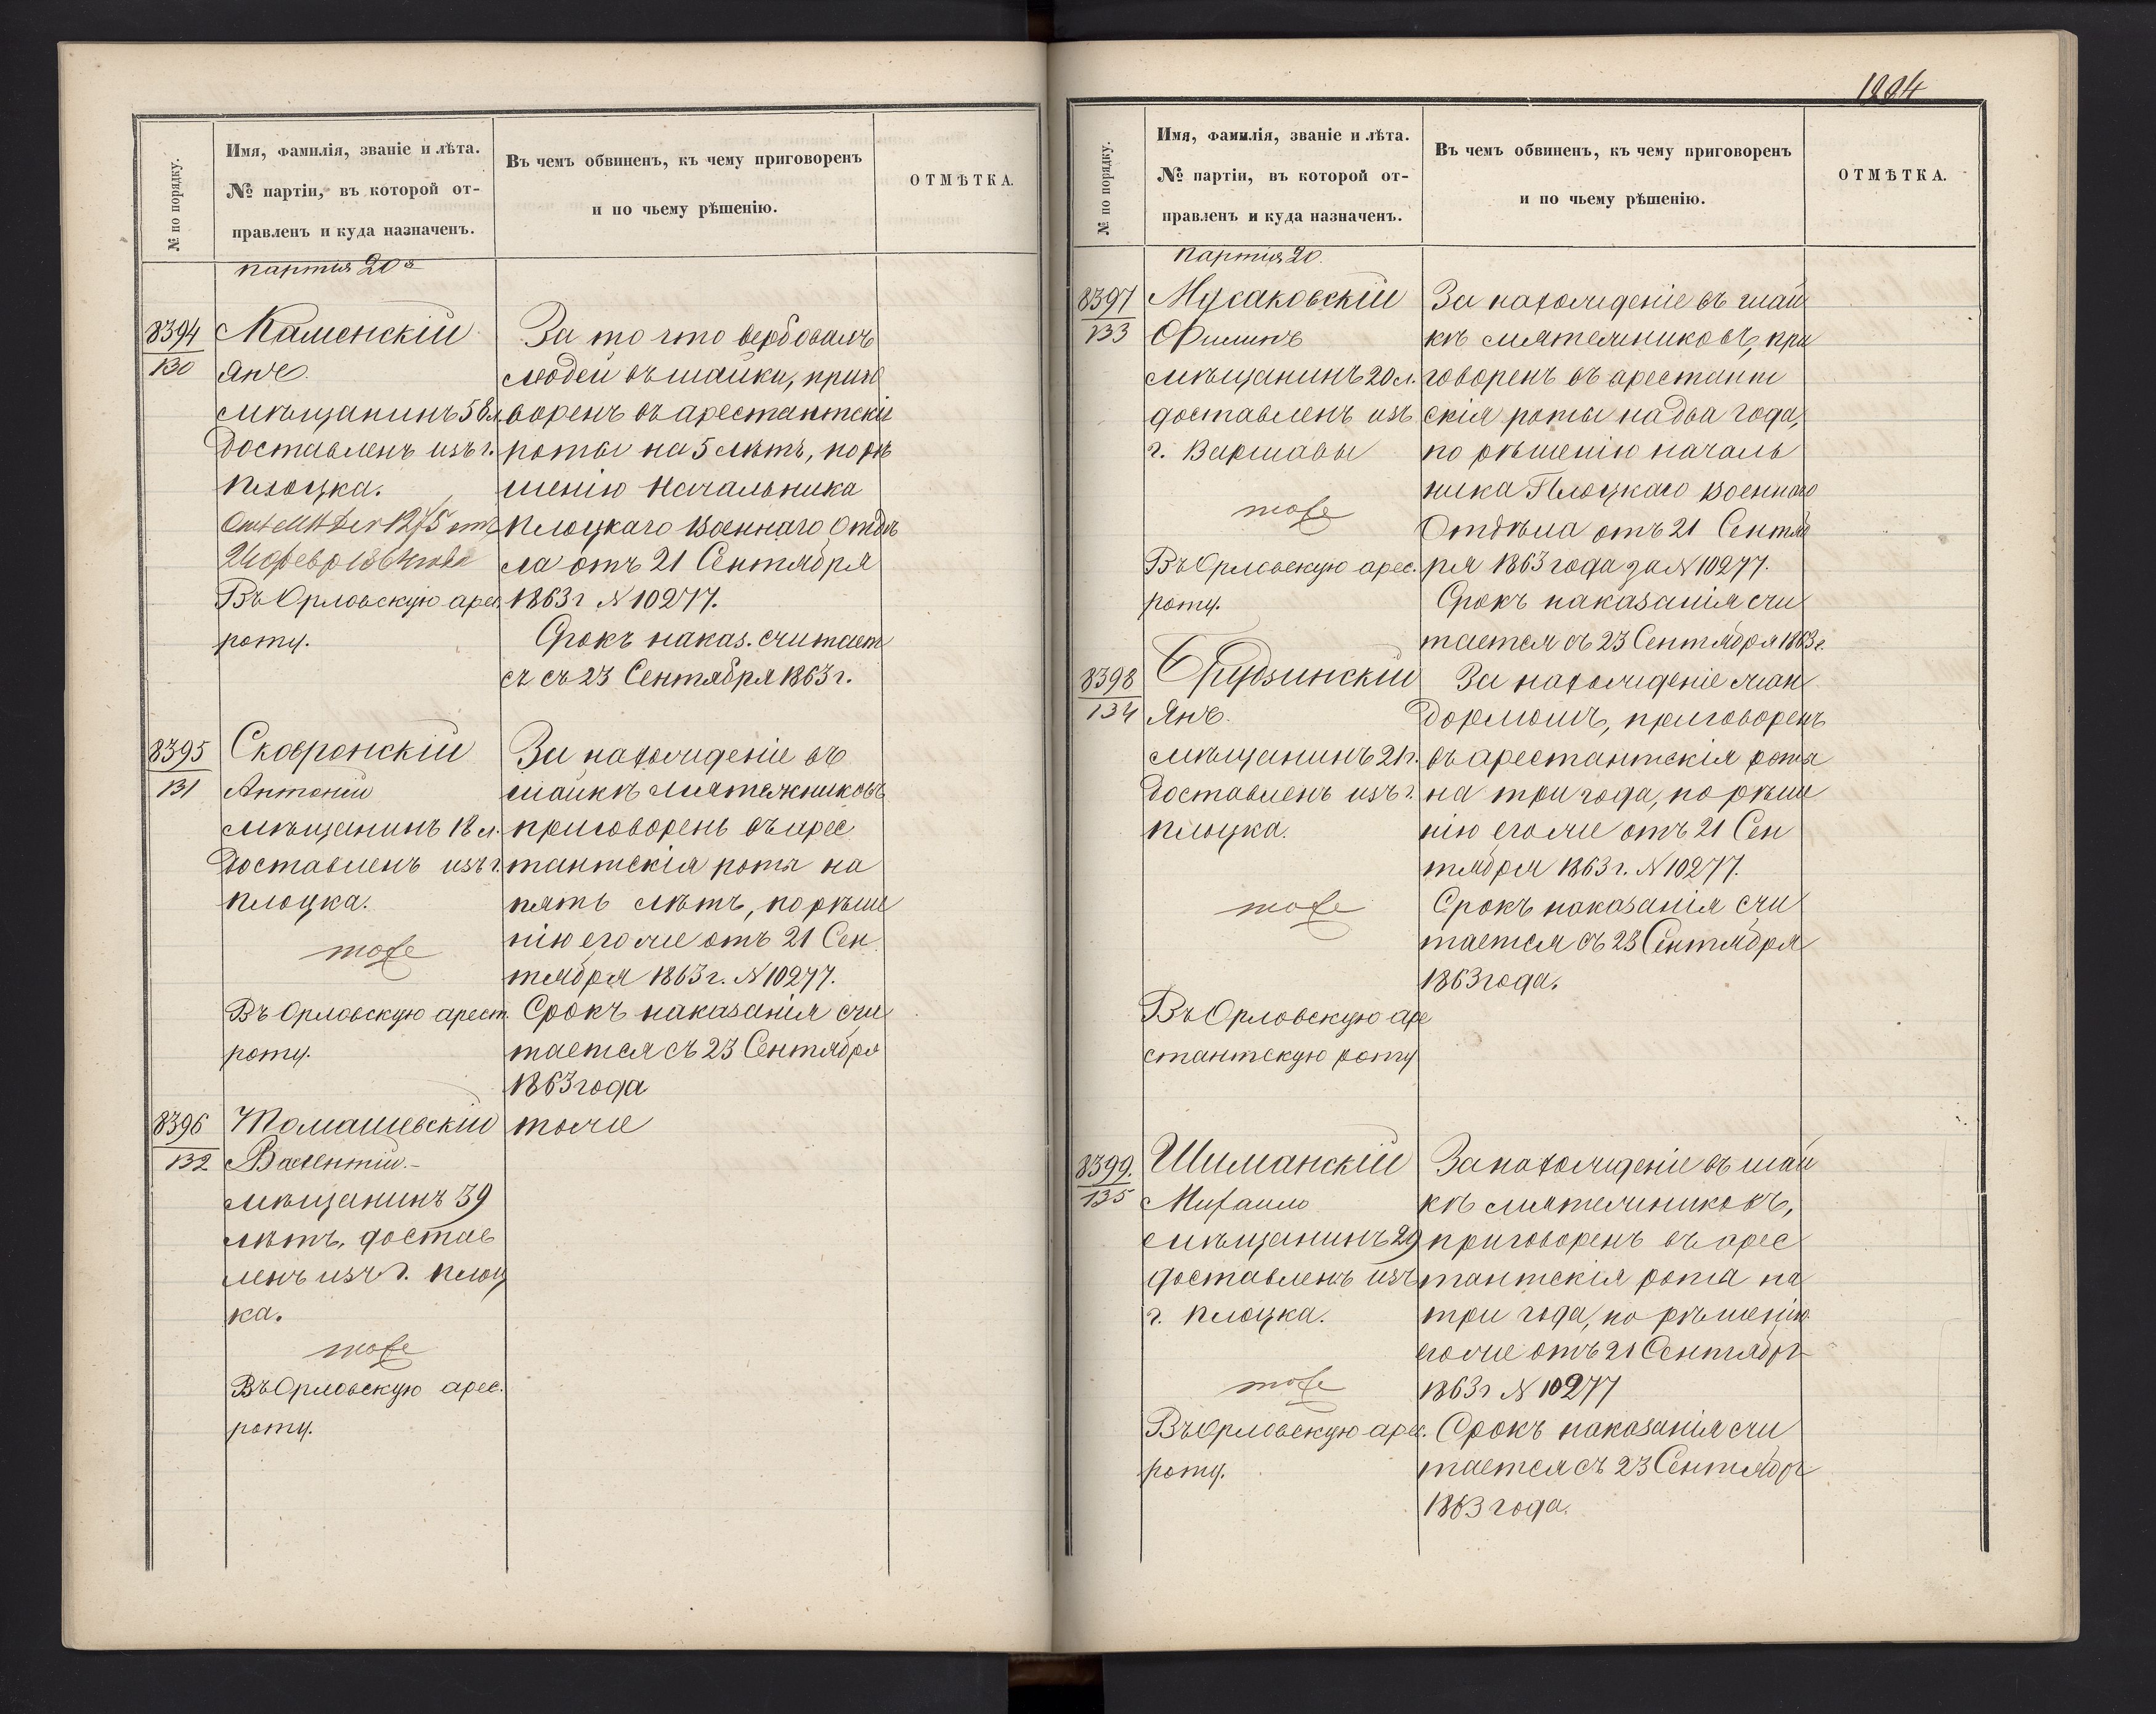 № по порядку.
Имя, фамилія, званіе и лѣта.
№ партіи, въ которой от-
правленъ и куда назначенъ.
Въ чемъ обвиненъ, къ чему приговоренъ
и по чьему рѣшенію.
ОТМѢТКА.
партія 20я
8394
130
Каменскій
Янъ.
мѣщанинъ 58 л.
доставленъ изъ г.
Плоцка.
24 февр 1864 года
Въ Орловскую арес.
роту.
За то что вербовалъ
людей въ шайки, приго
воренъ въ арестантскія
роты на 5 лѣтъ, по рѣ
шенію Начальника
Плоцкаго Военнаго Отдѣ
ла отъ 21 Сентября
1863 г № 10277.
Срокъ наказ. считает
ся съ 23 Сентября 1863 г.
8395
131
Сковронскій
Антоній
мѣщанинъ 18 л.
доставленъ изъ г.
Плоцка.
тоже
Въ Орловскую арест.
роту.
За нахожденіе въ
шайкѣ мятежниковъ
приговоренъ въ арес
тантскія роты на
пять лѣтъ, по рѣше
нію его же отъ 21 Сен
тября 1863 г. № 10277.
Срокъ наказанія счи
тается съ 23 Сентября
1863 года
8396
132
Томашевскій
Валентій.-
мѣщанинъ 39
лѣтъ, достав
ленъ изъ г. Плоц
ка.
тоже
Въ Орловскую арес.
роту.
тоже
1294
№ по порядку.
Имя, фамилія, званіе и лѣта.
№ партіи, въ которой от-
правленъ и куда назначенъ.
Въ чемъ обвиненъ, къ чему приговоренъ
и по чьему рѣшенію.
ОТМѢТКА.
партія 20.
8397
133
Мусаковскій
Филипъ
мѣщанинъ 20 л.
доставленъ изъ
г. Варшавы
тоже
Въ Орловскую арес.
роту.
За нахожденіе въ шай
кѣ мятежниковъ, при
говоренъ въ арестант
скія роты на два года,
по рѣшенію началь
ника Плоцкаго Военнаго
Отдѣла отъ 21 Сентяб
ря 1863 года за № 10277.
Срокъ наказанія счи
тается съ 23 Сентября 1863 г.
8398
134
Грудзинскій
Янъ.
мѣщанинъ 21 г.
доставленъ изъ г.
Плоцка.
тоже
Въ Орловскую аре
стантскую роту
За нахожденіе жан
дармомъ, приговоренъ
въ арестантскія роты
на три года, по рѣше
нію его же отъ 21 Сен
тября 1863 г. № 10277.
Срокъ наказанія счи
тается съ 23 Сентября
1863 года.
8399.
135
Шиманскій
Михаилъ
мѣщанинъ 29
доставленъ изъ
г. Плоцка.
тоже
Въ Орловскую арес.
роту.
За нахожденіе въ шай
кѣ мятежниковъ,
приговоренъ въ арес
тантскія роты на
три года, по рѣшенію
его же отъ 21 Сентября
1863 г № 10277
Срокъ наказанія счи
тается съ 23 Сентября
1863 года.